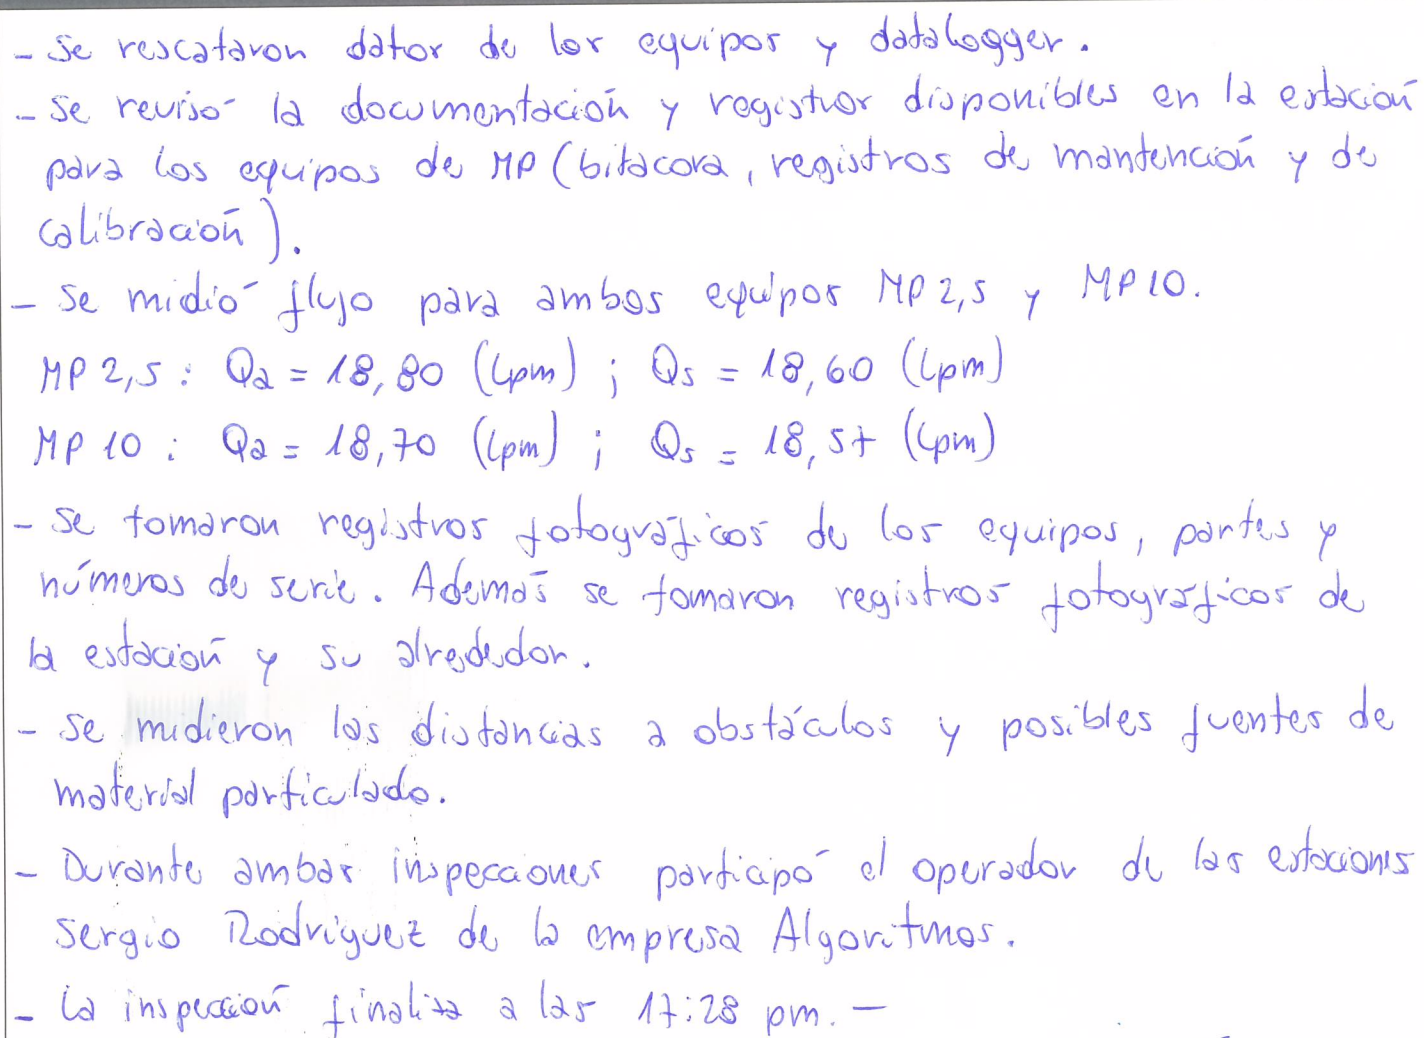 - Se rescataron datos de los equipos y datalogger.
- Se revisó la documentación y registros disponibles en la estación
para los equipos de MP (bitacora, registros de mantención y de
calibración).
- Se midió flujo para ambos equipos MP 2,5 y MP10.
MP 2,5 : Qa = 18,80 (Lpm) ; Qs = 18,60 (Lpm)
MP 10 : Qa = 18,70 (Lpm) ; Qs = 18,57 (Lpm)
- Se tomaron registros fotográficos de los equipos, partes y
números de serie. Además se tomaron registros fotográficos de
la estación y su alrededor.
- Se midieron las distancias a obstáculos y posibles fuentes de
material particulado.
- Durante ambas inspecciones participó el operador de las estaciones
Sergio Rodriguez de la empresa Algoritmos.
- La inspección finaliza a las 17:28 pm. —